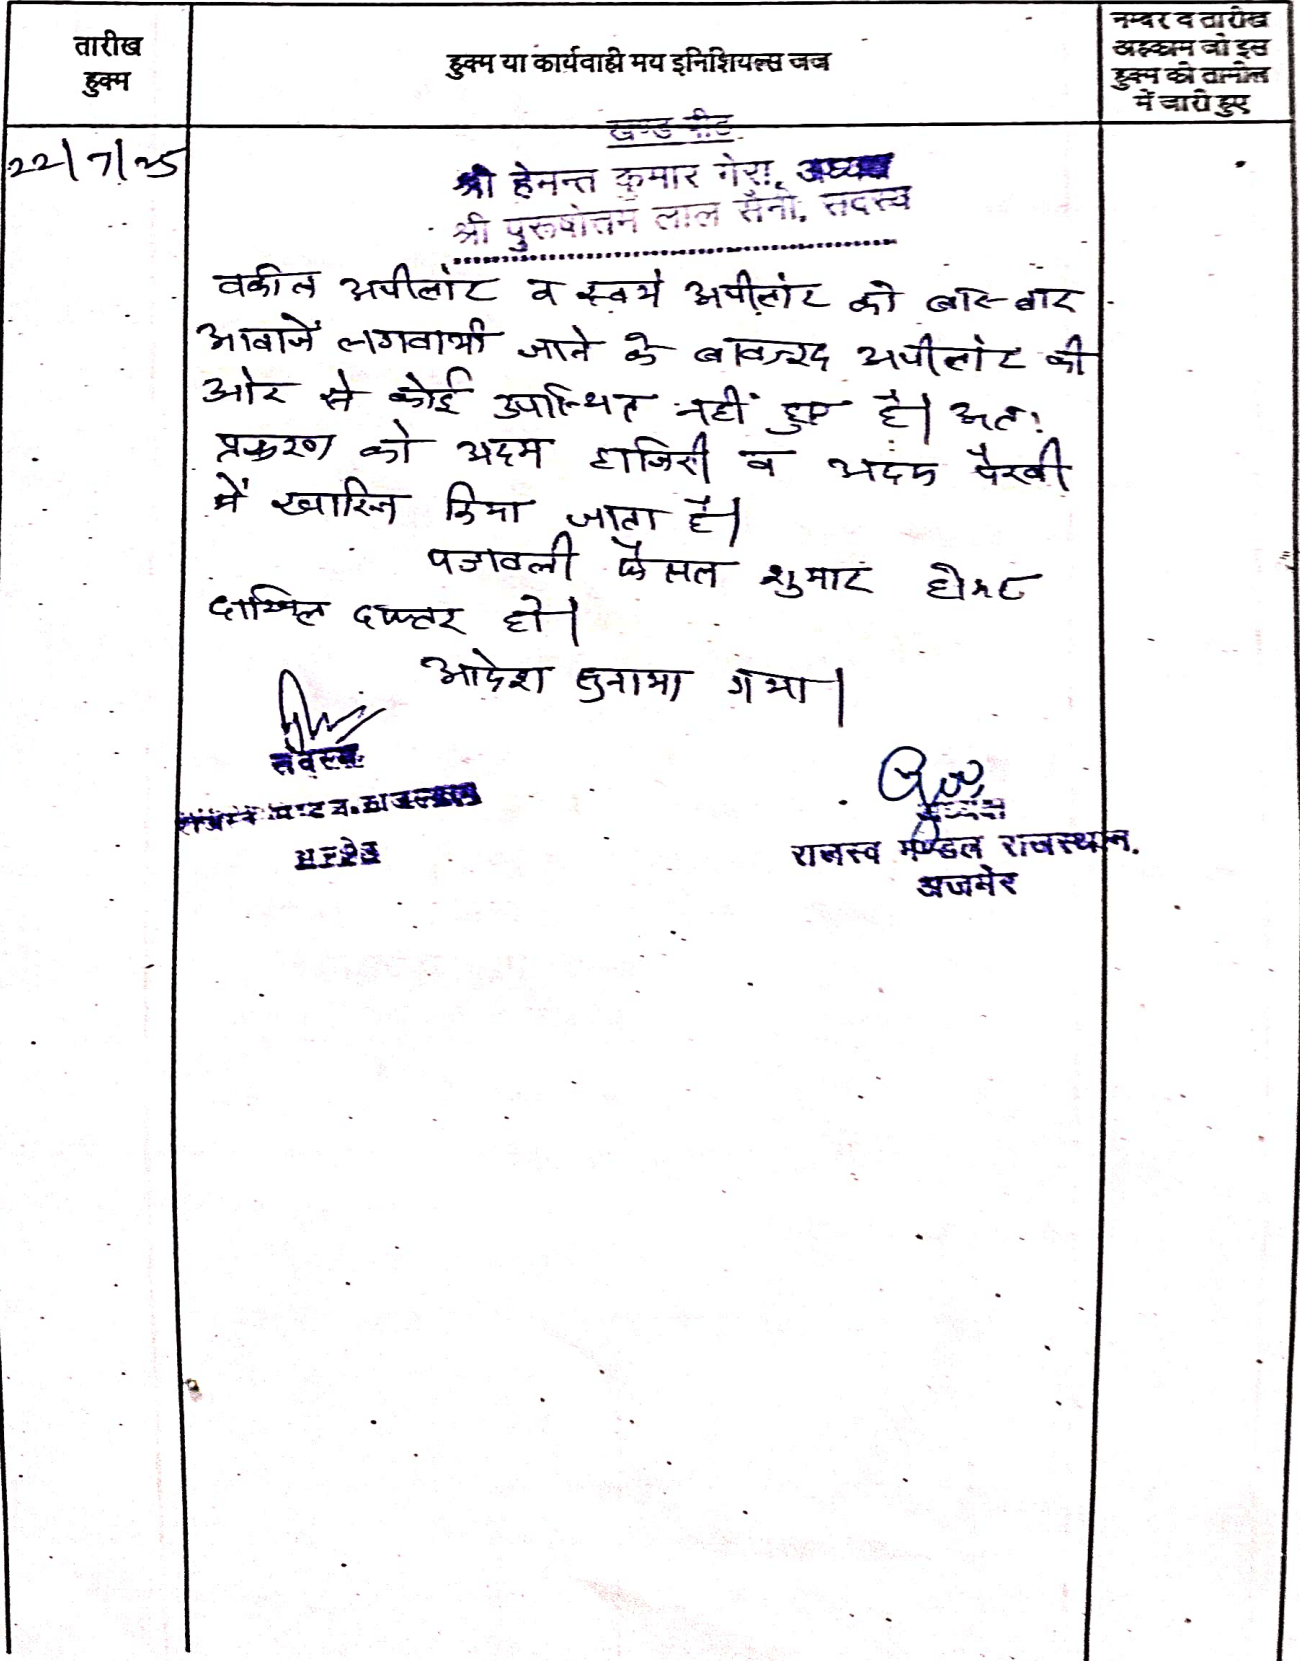 तारीख
हुक्म
हुक्म या कार्यवाही मय इनिशियल्स जज
नम्बर व तारीख
अहकाम जो इस
हुक्म की तामील
में जारी हुए
22/7/25
खण्ड पीठ
श्री हेमन्त कुमार गेरा, अध्यक्ष
श्री पुरूषोत्तम लाल सैनी, सदस्य
वकील अपीलांट व स्वयं अपीलांट को बार-बार
आवाजें लगवायी जाने के बावजूद अपीलांट की
ओर से कोई उपस्थित नहीं हुए है। अतः
प्रकरण को अदम हाजिरी व अदम पैरवी
में खारिज किया जाता है।
पत्रावली फैसल शुमार होकर
दाखिल दफ्तर हो।
आदेश सुनाया गया।
सदस्य
राजस्व मण्डल राजस्थान
अजमेर
अध्यक्ष
राजस्व मण्डल राजस्थान.
अजमेर